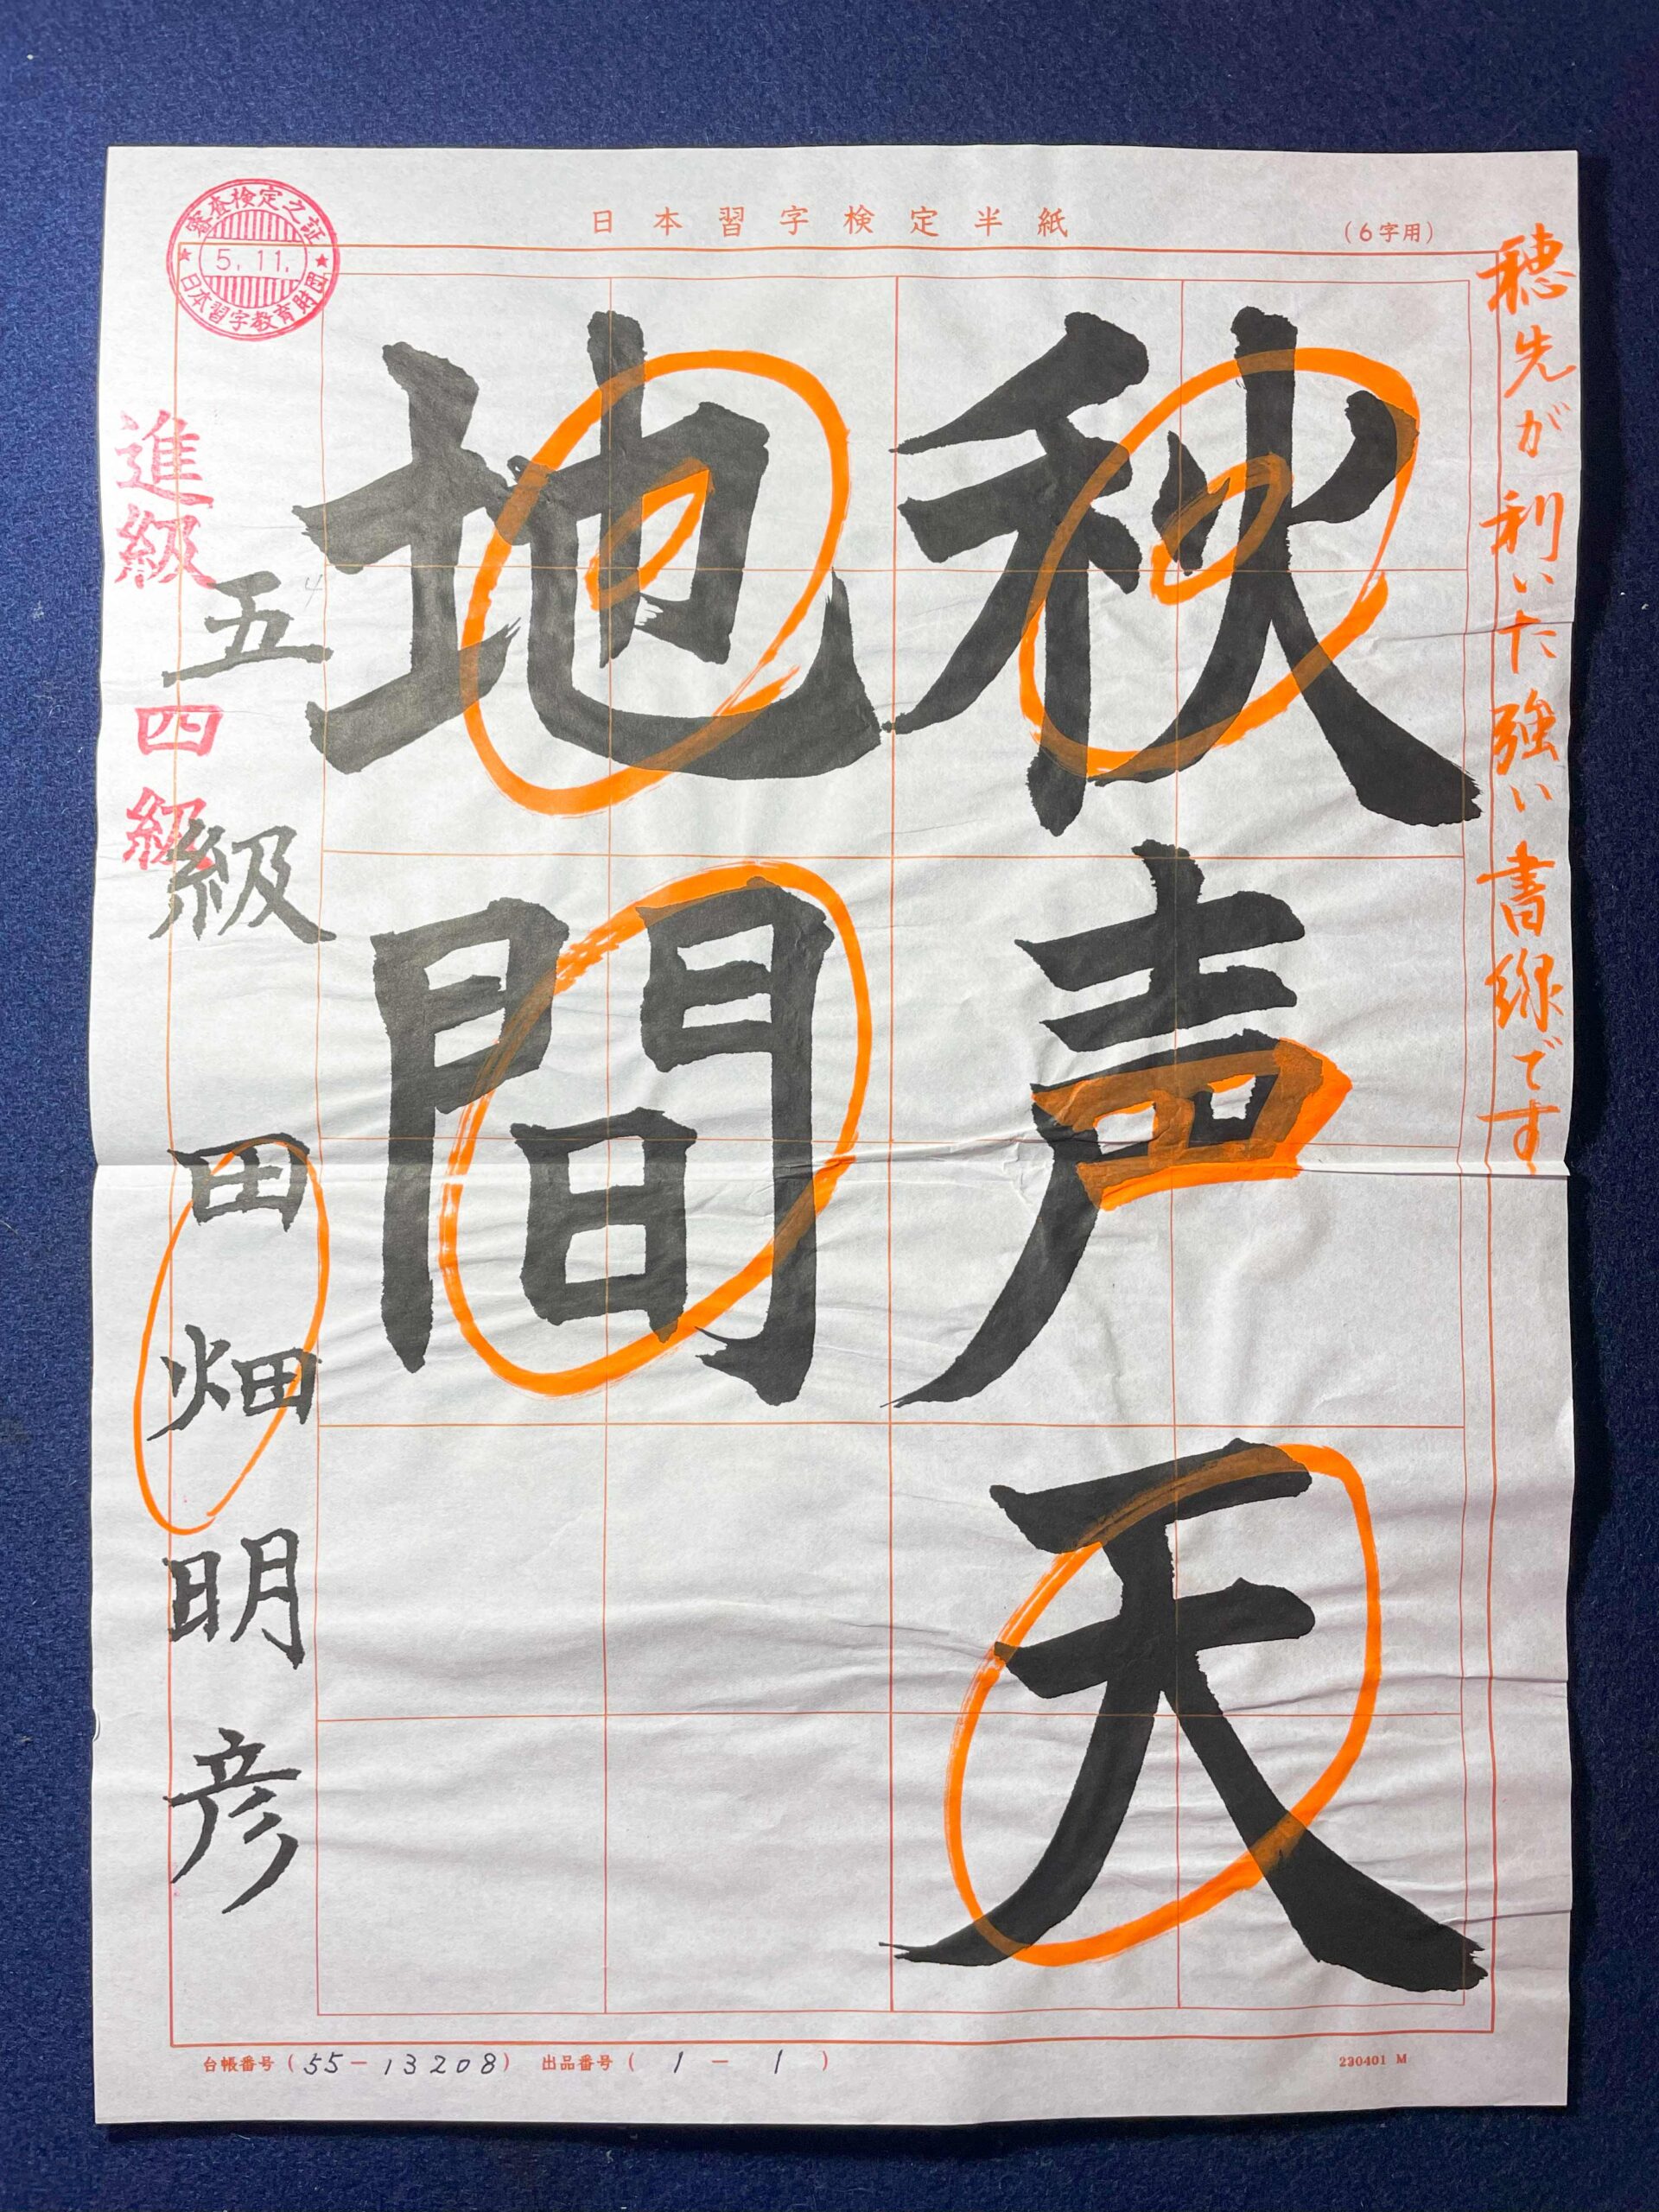 日本習字検定半紙
(6字用)
穂先が利いた強い書線です
秋声天
地間
五級 田畑明彦
進級
四級
審査検定之証
5.11.
日本習字教育財団
台帳番号(55-13208) 出品番号(1-1)
230401 M